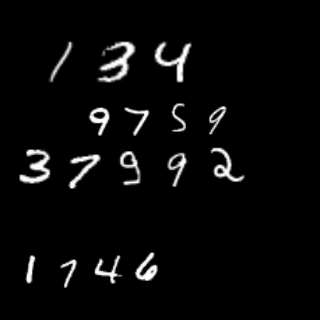 1 3 4
9 7 5 9
3 7 9 9 2
1 7 4 6